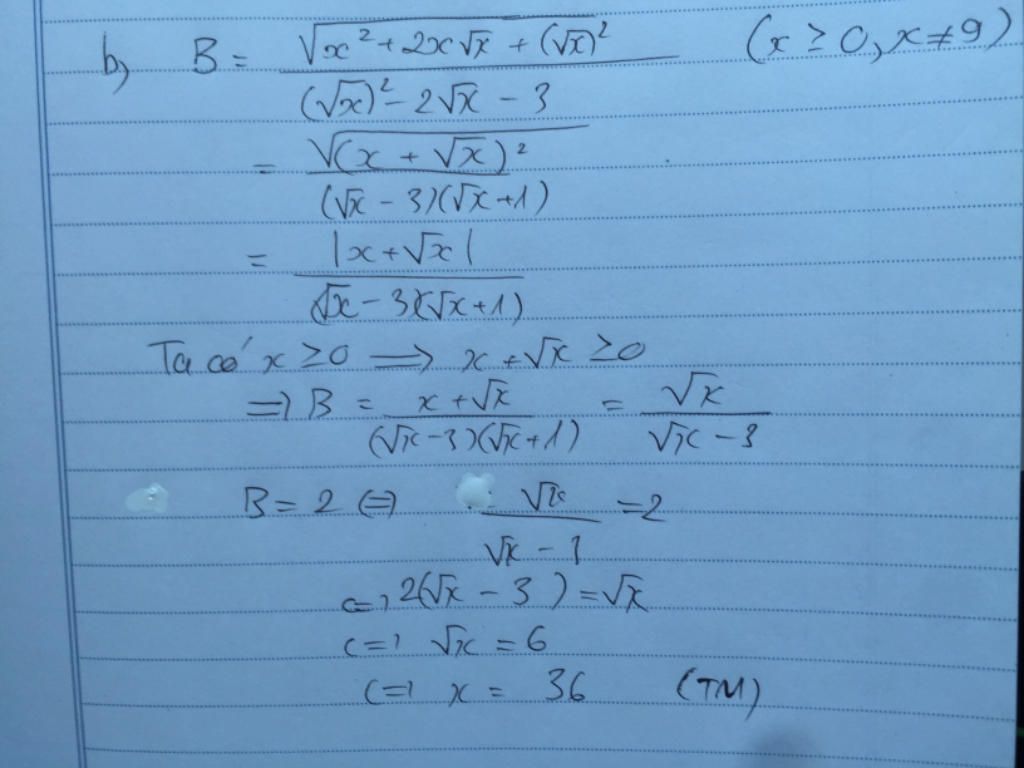 b) B = √(x² + 2x√x + (√x)²) / ((√x)² - 2√x - 3) (x ≥ 0, x ≠ 9)
= √((x + √x)²) / ((√x - 3)(√x + 1))
= |x + √x| / ((√x - 3)(√x + 1))
Ta có x ≥ 0 ⟹ x + √x ≥ 0
⟹ B = (x + √x) / ((√x - 3)(√x + 1)) = √x / (√x - 3)
B = 2 ⟺ √x / (√x - 3) = 2
⟺ 2(√x - 3) = √x
⟺ √x = 6
⟺ x = 36 (TM)